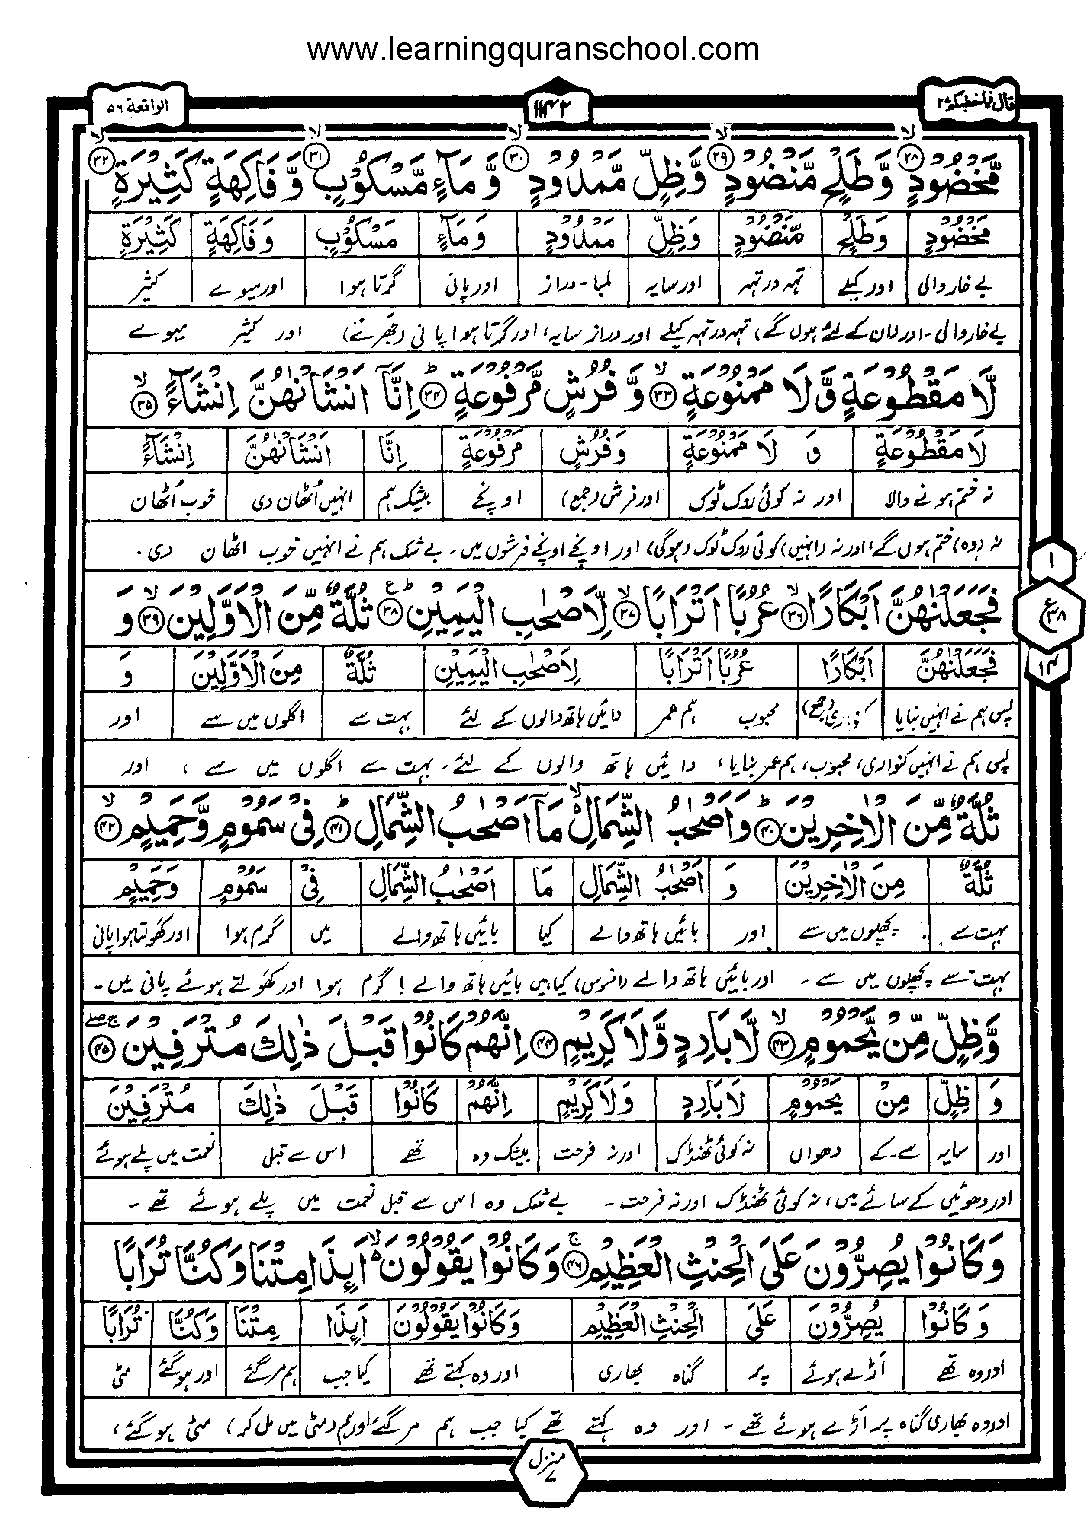 www.learningquranschool.com
قال فما خطبكم ٢٧ ١١٤٢ الواقعة ٥٦
مَّخْضُوْدٍ ﴿٢٨﴾ وَّطَلْحٍ مَّنْضُوْدٍ ﴿٢٩﴾ وَّظِلٍّ مَّمْدُوْدٍ ﴿٣٠﴾ وَّ مَآءٍ مَّسْكُوْبٍ ﴿٣١﴾ وَّ فَاكِهَةٍ كَثِيْرَةٍ ﴿٣٢﴾
مَخْضُوْدٍ وَطَلْحٍ مَنْضُوْدٍ وَظِلٍّ مَمْدُوْدٍ وَ مَآءٍ مَسْكُوْبٍ وَ فَاكِهَةٍ كَثِيْرَةٍ
بے خار والی اور کیلے تہہ در تہہ اور سایہ لمبا - دراز اور پانی گرتا ہوا اور میوے کثیر
بے خار والی - اور ان کے لئے ہوں گے) تہہ در تہہ کیلے اور دراز سایہ، اور گرتا ہوا پانی (جھرنے) اور کثیر میوے
لَّا مَقْطُوْعَةٍ وَّ لَا مَمْنُوْعَةٍ ﴿٣٣﴾ وَّ فُرُشٍ مَّرْفُوْعَةٍ ﴿٣٤﴾ اِنَّآ اَنْشَاْنٰهُنَّ اِنْشَآءً ﴿٣٥﴾
لَا مَقْطُوْعَةٍ وَ لَا مَمْنُوْعَةٍ وَ فُرُشٍ مَرْفُوْعَةٍ اِنَّا اَنْشَاْنٰهُنَّ اِنْشَآءً
نہ ختم ہونے والا اور نہ کوئی روک ٹوک اور فرش (جمع) اونچے بیشک ہم انہیں اُٹھان دی خوب اُٹھان
نہ (وہ) ختم ہوں گے، اور نہ (انہیں) کوئی روک ٹوک (ہوگی) اور اونچے اونچے فرشوں میں۔ بے شک ہم نے انہیں خوب اٹھان دی۔
فَجَعَلْنٰهُنَّ اَبْكَارًا ﴿٣٦﴾ عُرُبًا اَتْرَابًا ﴿٣٧﴾ لِّاَصْحٰبِ الْيَمِيْنِ ﴿٣٨﴾ ثُلَّةٌ مِّنَ الْاَوَّلِيْنَ ﴿٣٩﴾ وَ
فَجَعَلْنٰهُنَّ اَبْكَارًا عُرُبًا اَتْرَابًا لِاَصْحٰبِ الْيَمِيْنِ ثُلَّةٌ مِنَ الْاَوَّلِيْنَ وَ
پس ہم نے انہیں بنایا کنواری (جمع) محبوب ہم عمر دائیں ہاتھ والوں کے لئے بہت سے اگلوں میں سے اور
پس ہم نے انہیں کنواری، محبوب، ہم عمر بنایا، دائیں ہاتھ والوں کے لئے۔ بہت سے اگلوں میں سے، اور
ثُلَّةٌ مِّنَ الْاٰخِرِيْنَ ﴿٤٠﴾ وَ اَصْحٰبُ الشِّمَالِ مَآ اَصْحٰبُ الشِّمَالِ ﴿٤١﴾ فِيْ سَمُوْمٍ وَّ حَمِيْمٍ ﴿٤٢﴾
ثُلَّةٌ مِنَ الْاٰخِرِيْنَ وَ اَصْحٰبُ الشِّمَالِ مَا اَصْحٰبُ الشِّمَالِ فِيْ سَمُوْمٍ وَحَمِيْمٍ
بہت سے پچھلوں میں سے اور بائیں ہاتھ والے کیا بائیں ہاتھ والے میں گرم ہوا اور کھولتا ہوا پانی
بہت سے پچھلوں میں سے۔ اور بائیں ہاتھ والے (افسوس) کیا ہیں بائیں ہاتھ والے! گرم ہوا اور کھولتے ہوئے پانی میں۔
وَّظِلٍّ مِّنْ يَّحْمُوْمٍ ﴿٤٣﴾ لَّا بَارِدٍ وَّلَا كَرِيْمٍ ﴿٤٤﴾ اِنَّهُمْ كَانُوْا قَبْلَ ذٰلِكَ مُتْرَفِيْنَ ﴿٤٥﴾
وَ ظِلٍّ مِنْ يَحْمُوْمٍ لَا بَارِدٍ وَلَا كَرِيْمٍ اِنَّهُمْ كَانُوْا قَبْلَ ذٰلِكَ مُتْرَفِيْنَ
اور سایہ سے - کے دھواں نہ کوئی ٹھنڈک اور نہ فرحت بیشک وہ تھے اس سے قبل نعمت میں پلے ہوئے
اور دھوئیں کے سائے میں، نہ کوئی ٹھنڈک اور نہ فرحت۔ بے شک وہ اس سے قبل نعمت میں پلے ہوئے تھے۔
وَ كَانُوْا يُصِرُّوْنَ عَلَى الْحِنْثِ الْعَظِيْمِ ﴿٤٦﴾ وَ كَانُوْا يَقُوْلُوْنَ اَىِٕذَا مِتْنَا وَ كُنَّا تُرَابًا
وَ كَانُوْا يُصِرُّوْنَ عَلَى الْحِنْثِ الْعَظِيْمِ وَ كَانُوْا يَقُوْلُوْنَ اَىِٕذَا مِتْنَا وَكُنَّا تُرَابًا
اور وہ تھے اَڑے ہوئے پر گناہ بھاری اور وہ کہتے تھے کیا جب ہم مر گئے اور ہو گئے مٹی
اور وہ بھاری گناہ پر اَڑے ہوئے تھے۔ اور وہ کہتے تھے کیا جب ہم مر گئے اور ہم (مٹی میں مل کر) مٹی ہو گئے،
١
ع ٣٨
١٤
منزل ٧